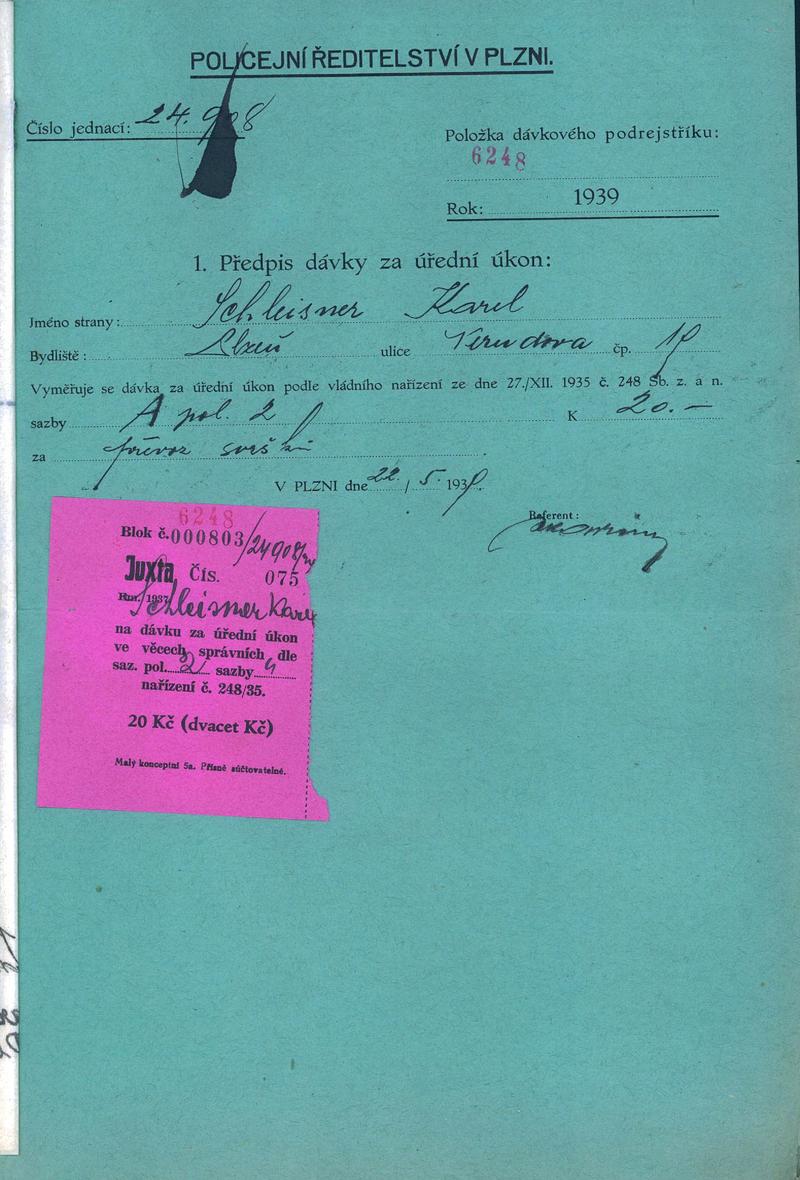 POLICEJNÍ ŘEDITELSTVÍ V PLZNI.
Číslo jednací: 24.908
Položka dávkového podrejstříku:
6248
Rok: 1939
1. Předpis dávky za úřední úkon:
Jméno strany: Schleisner Karel
Bydliště: Plzeň ulice čp.
Vyměřuje se dávka za úřední úkon podle vládního nařízení ze dne 27./XII. 1935 č. 248 Sb. z. a n.
sazby A pol. 2 K 20.—
za převoz
V PLZNI dne 22/5. 1939.
Referent:
6248
Blok č. 000803/24908/39
Juxta Čís. 075
Schleisner Karel
na dávku za úřední úkon
ve věcech správních dle
saz. pol. 2 sazby
nařízení č. 248/35.
20 Kč (dvacet Kč)
Malý konceptní 5a. Přísně súčtovatelné.